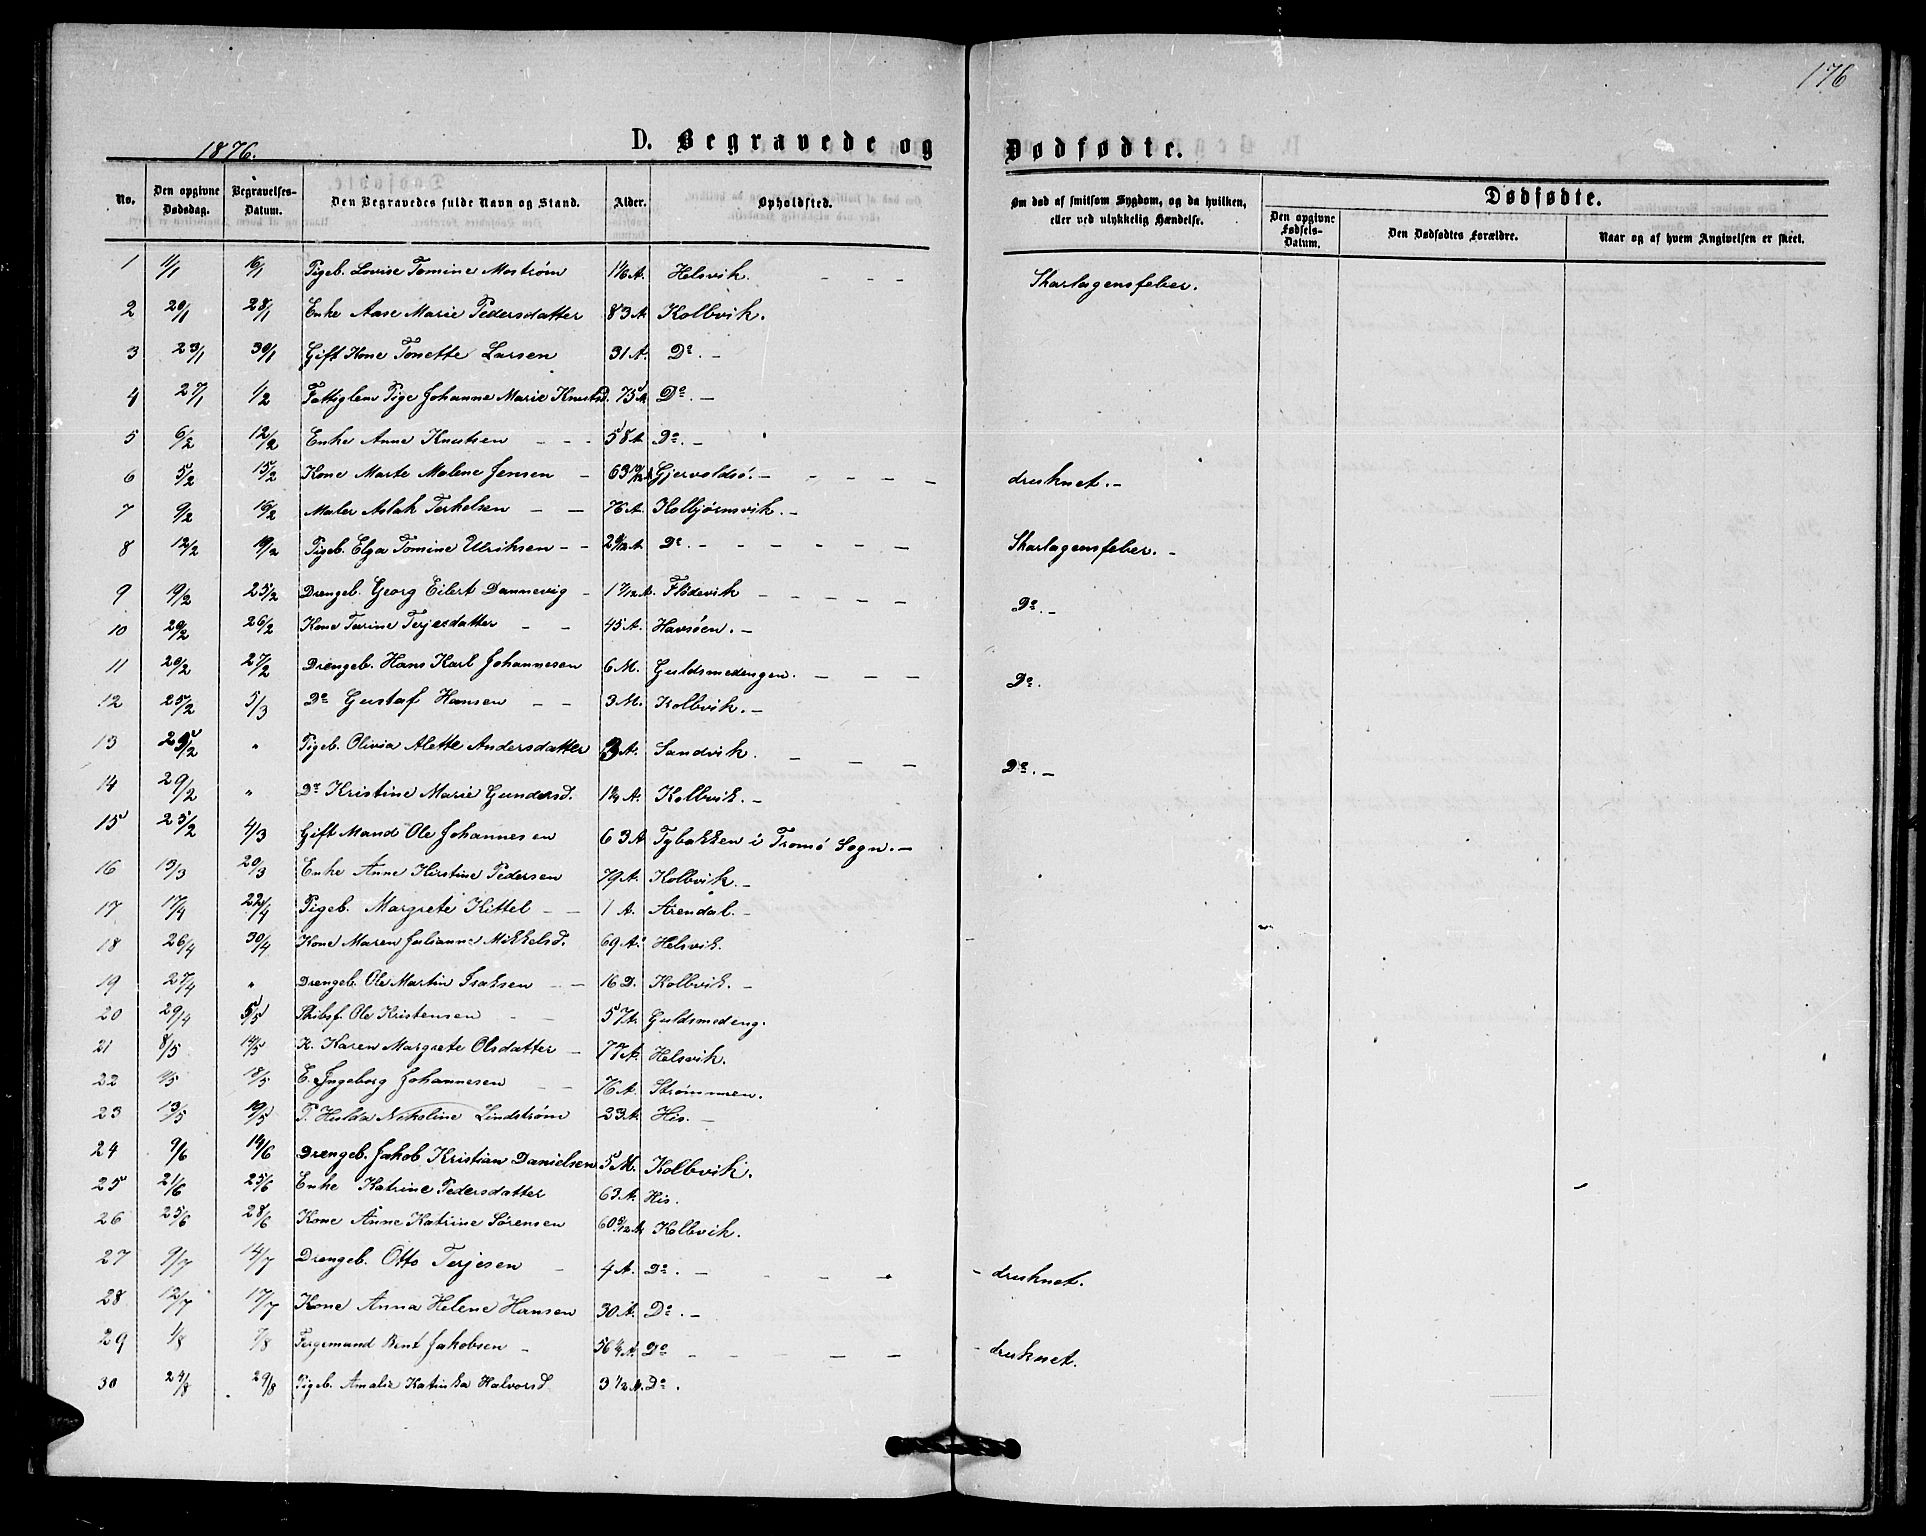 176
1876.
D. Begravede og Dødfødte.
No. Den opgivne Dødsdag. Begravelses-Datum. Den Begravedes fulde Navn og Stand. Alder. Opholdsted. Om død af smitsom Sygdom, og da hvilken, eller ved ulykkelig Hændelse. Dødfødte.
Den opgivne Fødsels-Datum. Den Dødfødtes Forældre. Naar og af hvem Angivelsen er skeet.
1 11/1 16/1 Pigeb. Lovise Tomine Mostrøm Helsvik. Skarlagensfeber.
2 20/1 28/1 Enke Aase Marie Pedersdatter 83 A. Kolbvik.
3 23/1 30/1 Gift Kone Tonette Larsen 31 A. Do. -
4 27/1 1/2 Fattiglem Pige Johanne Marie Knutsd. 75 A. Do. -
5 6/2 12/2 Enke Anne Knutsen - - - 58 A. Do. -
6 5/2 15/2 Kone Marte Malene Jensen - 63 Gjervoldsø. - druknet. -
7 9/2 16/2 Maler Aslak Terkelsen - - 76 A. Kolbjørnsvik. -
8 12/2 19/2 Pigeb. Elga Tomine Ulriksen - - Do. - Skarlagensfeber. -
9 19/2 25/2 Drengeb. Georg Eilert Dannevig - 1 7/12 A. Flødevik - Do. -
10 20/2 26/2 Kone Tarine Terjesdatter - - 45 A. Havsøen. -
11 20/2 27/2 Drengeb. Hans Karl Johannesen 6 M. Guldsmedengen. - Do.
12 25/2 5/3 Do Gustaf Hansen - - 3 M. Kolbvik. -
13 " Pigeb. Olivia Alette Andersdatter 3 A. Sandvik. - Do. -
14 29/2 " Do Kristine Marie Gundersd. Kolbvik. -
15 25/2 4/3 Gift Mand Ole Johannesen 63 A Tybakken i Tromø Sogn. -
16 13/3 20/3 Enke Anne Kirstine Pedersen 79 A. Kolbvik. -
17 17/4 22/4 Pigeb. Margrete Kittel - - 1 A. Arendal. -
18 26/4 30/4 Kone Maren Julianne Mikkelsd. 69 A. Helsvik.
19 27/4 " Drengeb. Ole Martin Isaksen - - 16 D. Kolbvik. -
20 29/4 5/5 Skibsf. Ole Kristensen - - 57 A. Guldsmedeng.
21 8/5 14/5 K. Karen Margrete Olsdatter - 77 A. Helsvik.
22 11/5 18/5 E. Ingeborg Johannesen - - 76 A. Strømmen.
23 13/5 19/5 P. Hulda Nikoline Lindstrøm 23 A. His. -
24 9/6 14/6 Drengeb. Jakob Kristian Danielsen 5 M. Kolbvik.
25 21/6 25/6 Enke Katrine Pedersdatter 63 A. His.
26 25/6 28/6 Kone Anne Katrine Sørensen Kolbvik.
27 9/7 14/7 Drengeb. Otto Terjesen - 4 A. Do. - - druknet.
28 12/7 17/7 Kone Anna Helene Hansen 30 A. Do. -
29 1/8 7/8 Færgemand Bent Jakobsen - Do - - druknet.
30 24/8 29/8 Pigeb. Amalie Katinka Halvorsd. 3 1/2 Do.